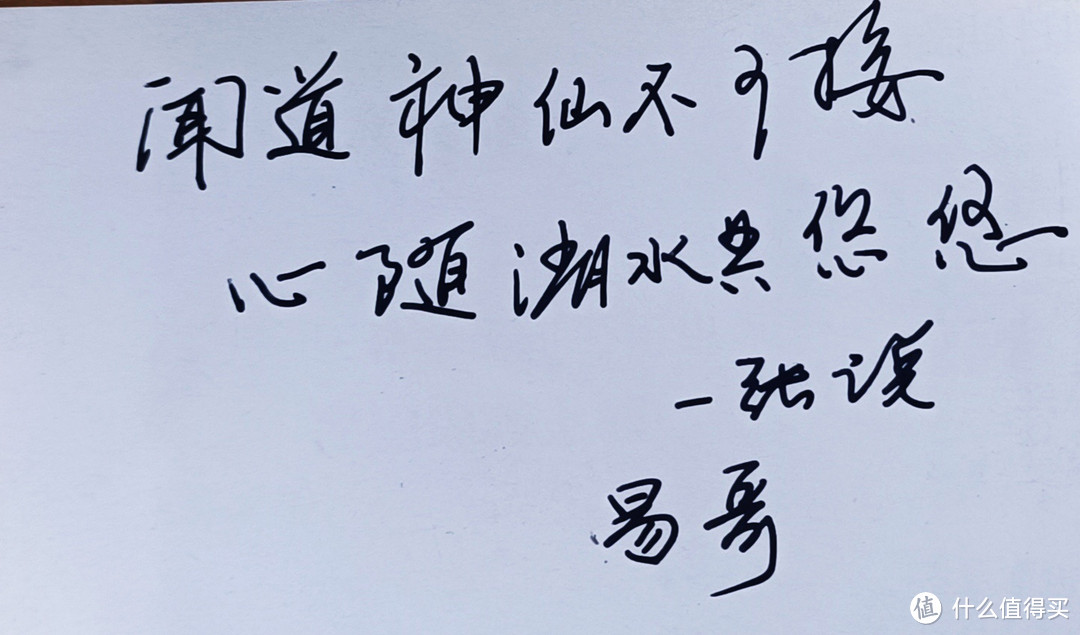 闻道神仙不可接
心随湖水共悠悠
一张说
易哥
值 什么值得买